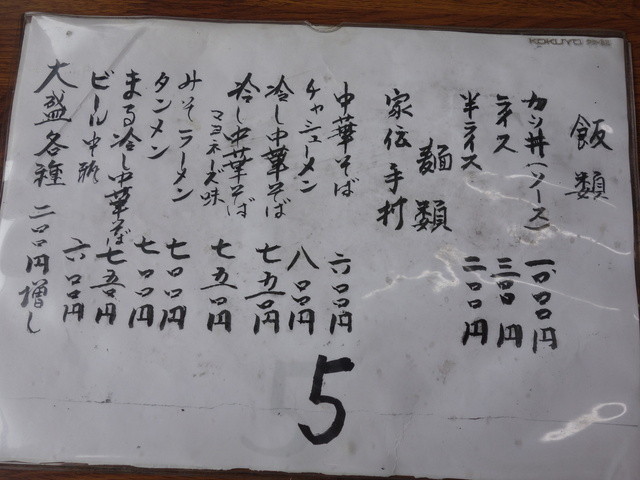 飯類
カツ丼(ソース) 一〇〇〇円
ライス 三〇〇円
半ライス 二〇〇円
麺類
家伝手打
中華そば 六〇〇円
チャシューメン 八〇〇円
冷し中華そば 七五〇円
冷し中華そば マヨネーズ味 七五〇円
みそラーメン 七〇〇円
タンメン 七〇〇円
まる冷し中華そば 七五〇円
ビール中瓶 六〇〇円
大盛各種 二〇〇円増し
5
KOKUYO